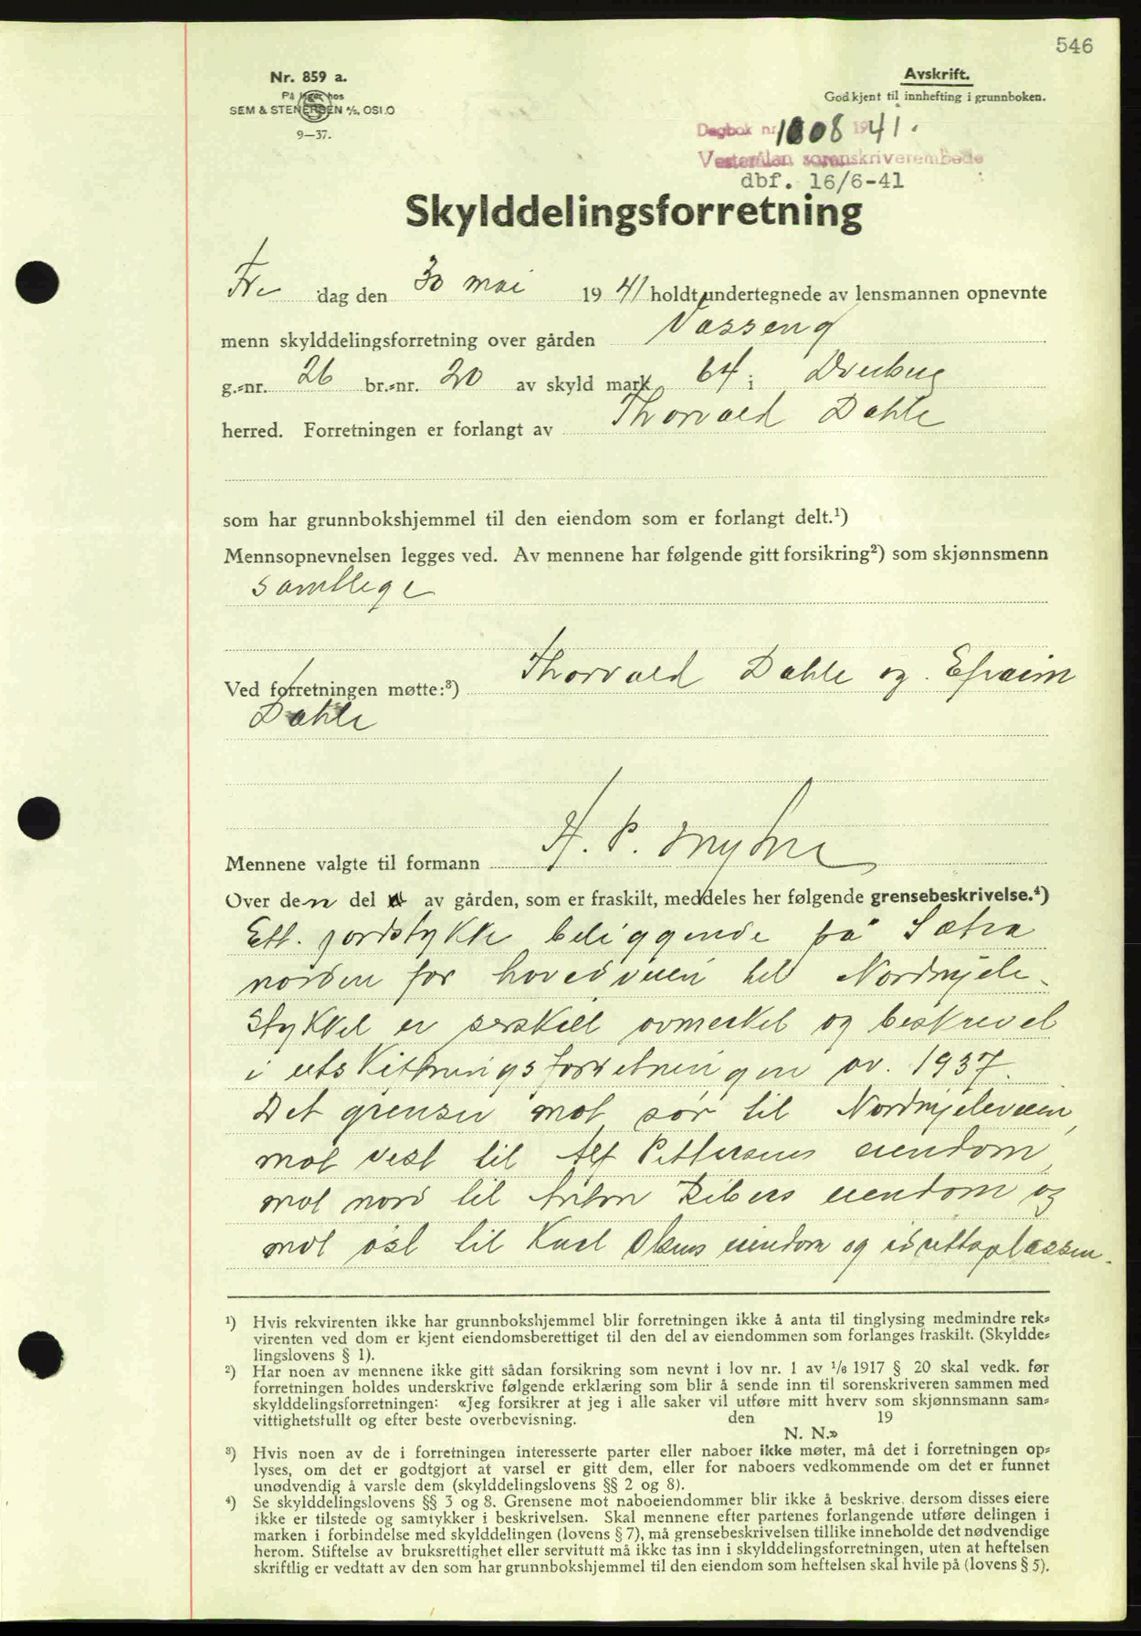 546
Nr. 859 a.
På lager hos
SEM & STENERSEN A/S, OSLO
9—37.
Avskrift.
Godkjent til innhefting i grunnboken.
Dagbok nr. 1008 1941.
Vesterålen sorenskriverembede
dbf. 16/6-41
Skylddelingsforretning
Fre dag den 30 mai 1941 holdt undertegnede av lensmannen opnevnte
menn skylddelingsforretning over gården Vasseng
g.-nr. 26 br.-nr. 20 av skyld mark 64 i Dverberg
herred. Forretningen er forlangt av Thorvald Dahle
som har grunnbokshjemmel til den eiendom som er forlangt delt.¹)
Mennsopnevnelsen legges ved. Av mennene har følgende gitt forsikring²) som skjønnsmenn
samtlige
Ved forretningen møtte:³) Thorvald Dahle og Efraim
Dahle
Mennene valgte til formann H. P. Myhre
Over den del av gården, som er fraskilt, meddeles her følgende grensebeskrivelse.⁴)
Ett jordstykke beliggende på Sætra
norden for hovedveien til Nordmjele.
Stykket er særskilt avmerket og beskrevet
i utskiftningsforretningen av 1937.
Det grenser mot sør til Nordmjeleveien,
mot vest til Alf Pettersens eiendom,
mot nord til Anton eiendom og
mot øst til Karl Olsens eiendom og idrettsplassen.
¹) Hvis rekvirenten ikke har grunnbokshjemmel blir forretningen ikke å anta til tinglysing medmindre rek-
virenten ved dom er kjent eiendomsberettiget til den del av eiendommen som forlanges fraskilt. (Skyldde-
lingslovens § 1).
²) Har noen av mennene ikke gitt sådan forsikring som nevnt i lov nr. 1 av 1/6 1917 § 20 skal vedk. før
forretningen holdes underskrive følgende erklæring som blir å sende inn til sorenskriveren sammen med
skylddelingsforretningen: «Jeg forsikrer at jeg i alle saker vil utføre mitt hverv som skjønnsmann sam-
vittighetsfullt og efter beste overbevisning. den 19
N. N.»
³) Hvis noen av de i forretningen interesserte parter eller naboer ikke møter, må det i forretningen op-
lyses, om det er godtgjort at varsel er gitt dem, eller for naboers vedkommende om det er funnet
unødvendig å varsle dem (skylddelingslovens §§ 2 og 8).
⁴) Se skylddelingslovens §§ 3 og 8. Grensene mot naboeiendommer blir ikke å beskrive, dersom disses eiere
ikke er tilstede og samtykker i beskrivelsen. Skal mennene efter partenes forlangende utføre delingen i
marken i forbindelse med skylddelingen (lovens § 7), må grensebeskrivelsen tillike inneholde det nødvendige
herom. Stiftelse av bruksrettighet eller servitutt må ikke tas inn i skylddelingsforretningen, uten at heftelsen
skriftlig er vedtatt av den som har grunnbokshjemmel til den eiendom som heftelsen skal hvile på (lovens § 5).